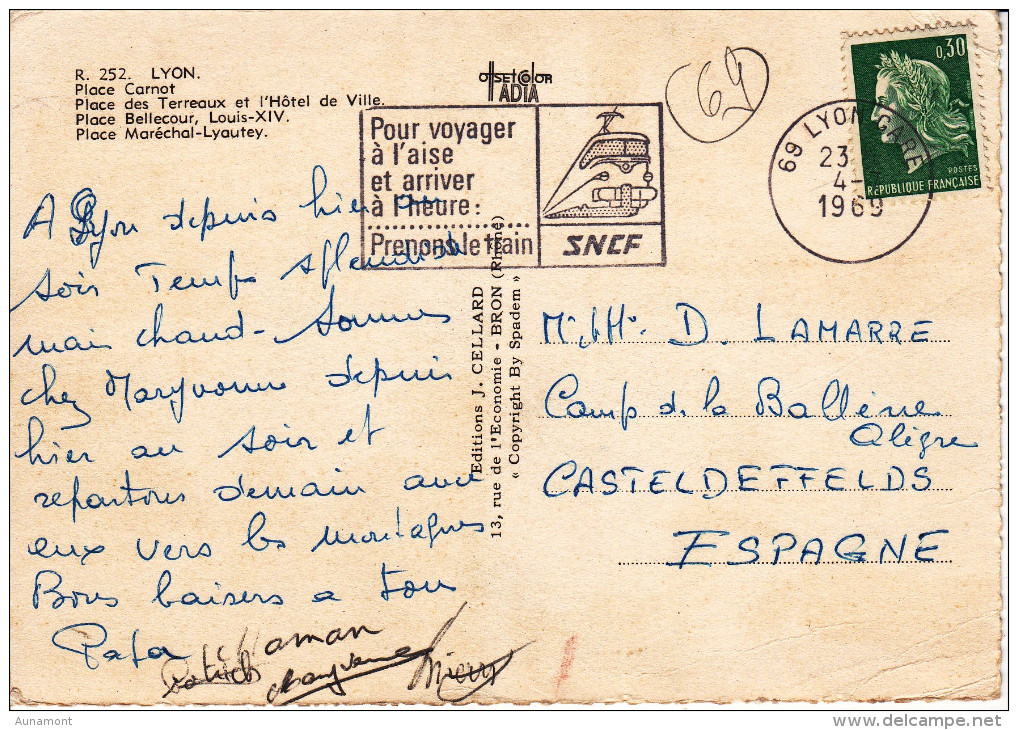 R. 252. LYON.
Place Carnot
Place des Terreaux et l'Hôtel de Ville.
Place Bellecour, Louis-XIV.
Place Maréchal-Lyautey.
OFFSETCOLOR
IADIA
64
0,30
POSTES
RÉPUBLIQUE FRANÇAISE
69 LYON GARE
23
4-
1969
Pour voyager
à l'aise
et arriver
à l'heure:
Prenons le train
SNCF
A Lyon depuis hier au
soir Temps splendide
mais chaud - Sommes
chez Maryvonne depuis
hier au soir et
repartons demain avec
eux vers les montagnes
Bons baisers a tous
Papa Maman
Patrick Maryvonne Thierry
Editions J. CELLARD
13, rue de l'Economie - BRON (Rhône)
« Copyright By Spadem »
Mr, Me. D. LAMARRE
Camp de la Ballène
Alègre
CASTELDEFFELDS
ESPAGNE
Aunamont
delcampe.net